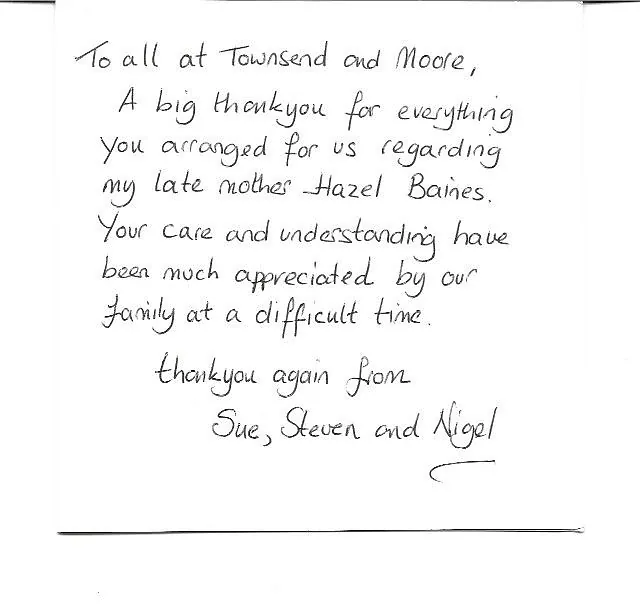 To all at Townsend and Moore,
A big thankyou for everything
you arranged for us regarding
my late mother Hazel Baines.
Your care and understanding have
been much appreciated by our
family at a difficult time.
thankyou again from
Sue, Steven and Nigel